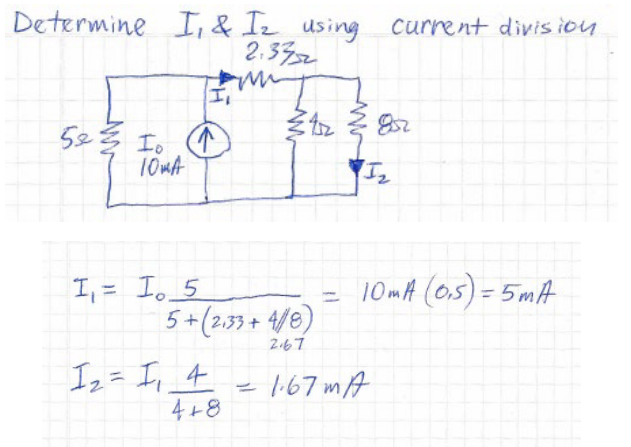 Determine I₁ & I₂ using current division
2.33Ω
I₁
5Ω
I₀
10mA
4Ω
8Ω
I₂
I₁ = I₀ 5 / (5+(2.33+4//8)) = 10mA (0.5) = 5mA
2.67
I₂ = I₁ 4 / (4+8) = 1.67mA